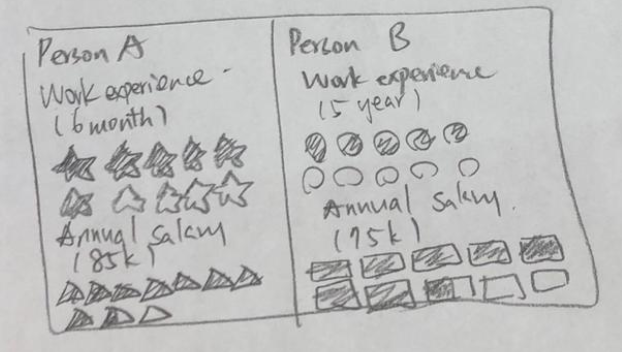 Person A
Work experience
(6 month)
Annual Salary
(85k)
Person B
Work experience
(5 year)
Annual Salary.
(75k)